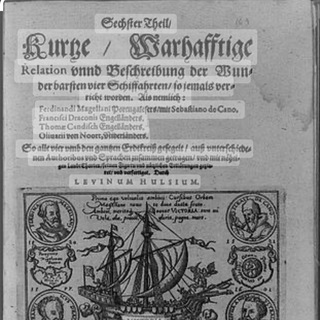 Sechster Theil/
Kurtze / Warhafftige
Relation vnnd Beschreibung der Wun-
derbarsten vier Schiffahrten / so jemals ver-
richt worden. Als nemlich:
Ferdinandi Magellani Portugalesers / mit Sebastiano de Cano,
Francisci Draconis Engelländers,
Thomæ Candisch Engelländers,
Oliuarii von Noort, Niderländers.
So alle vier vmb den gantzen Erdtkreiß gesegelt / auß vnterschiede-
nen Authoribus vnd Sprachen zusammen getragen / vnd mit nöhti-
gen Landt Charten / feinen Figuren vnd nützlichen Erklärungen gezie-
ret / vnd verfertiget. Durch
LEVINUM HULSIUM.
Prima ego velivolis ambivi Cursibus Orbem
Magellane novo te duce ducta freto.
Ambivi, meritoq vocor VICTORIA: sunt mi
Vela, alæ, precium, gloria, pugna, mare.